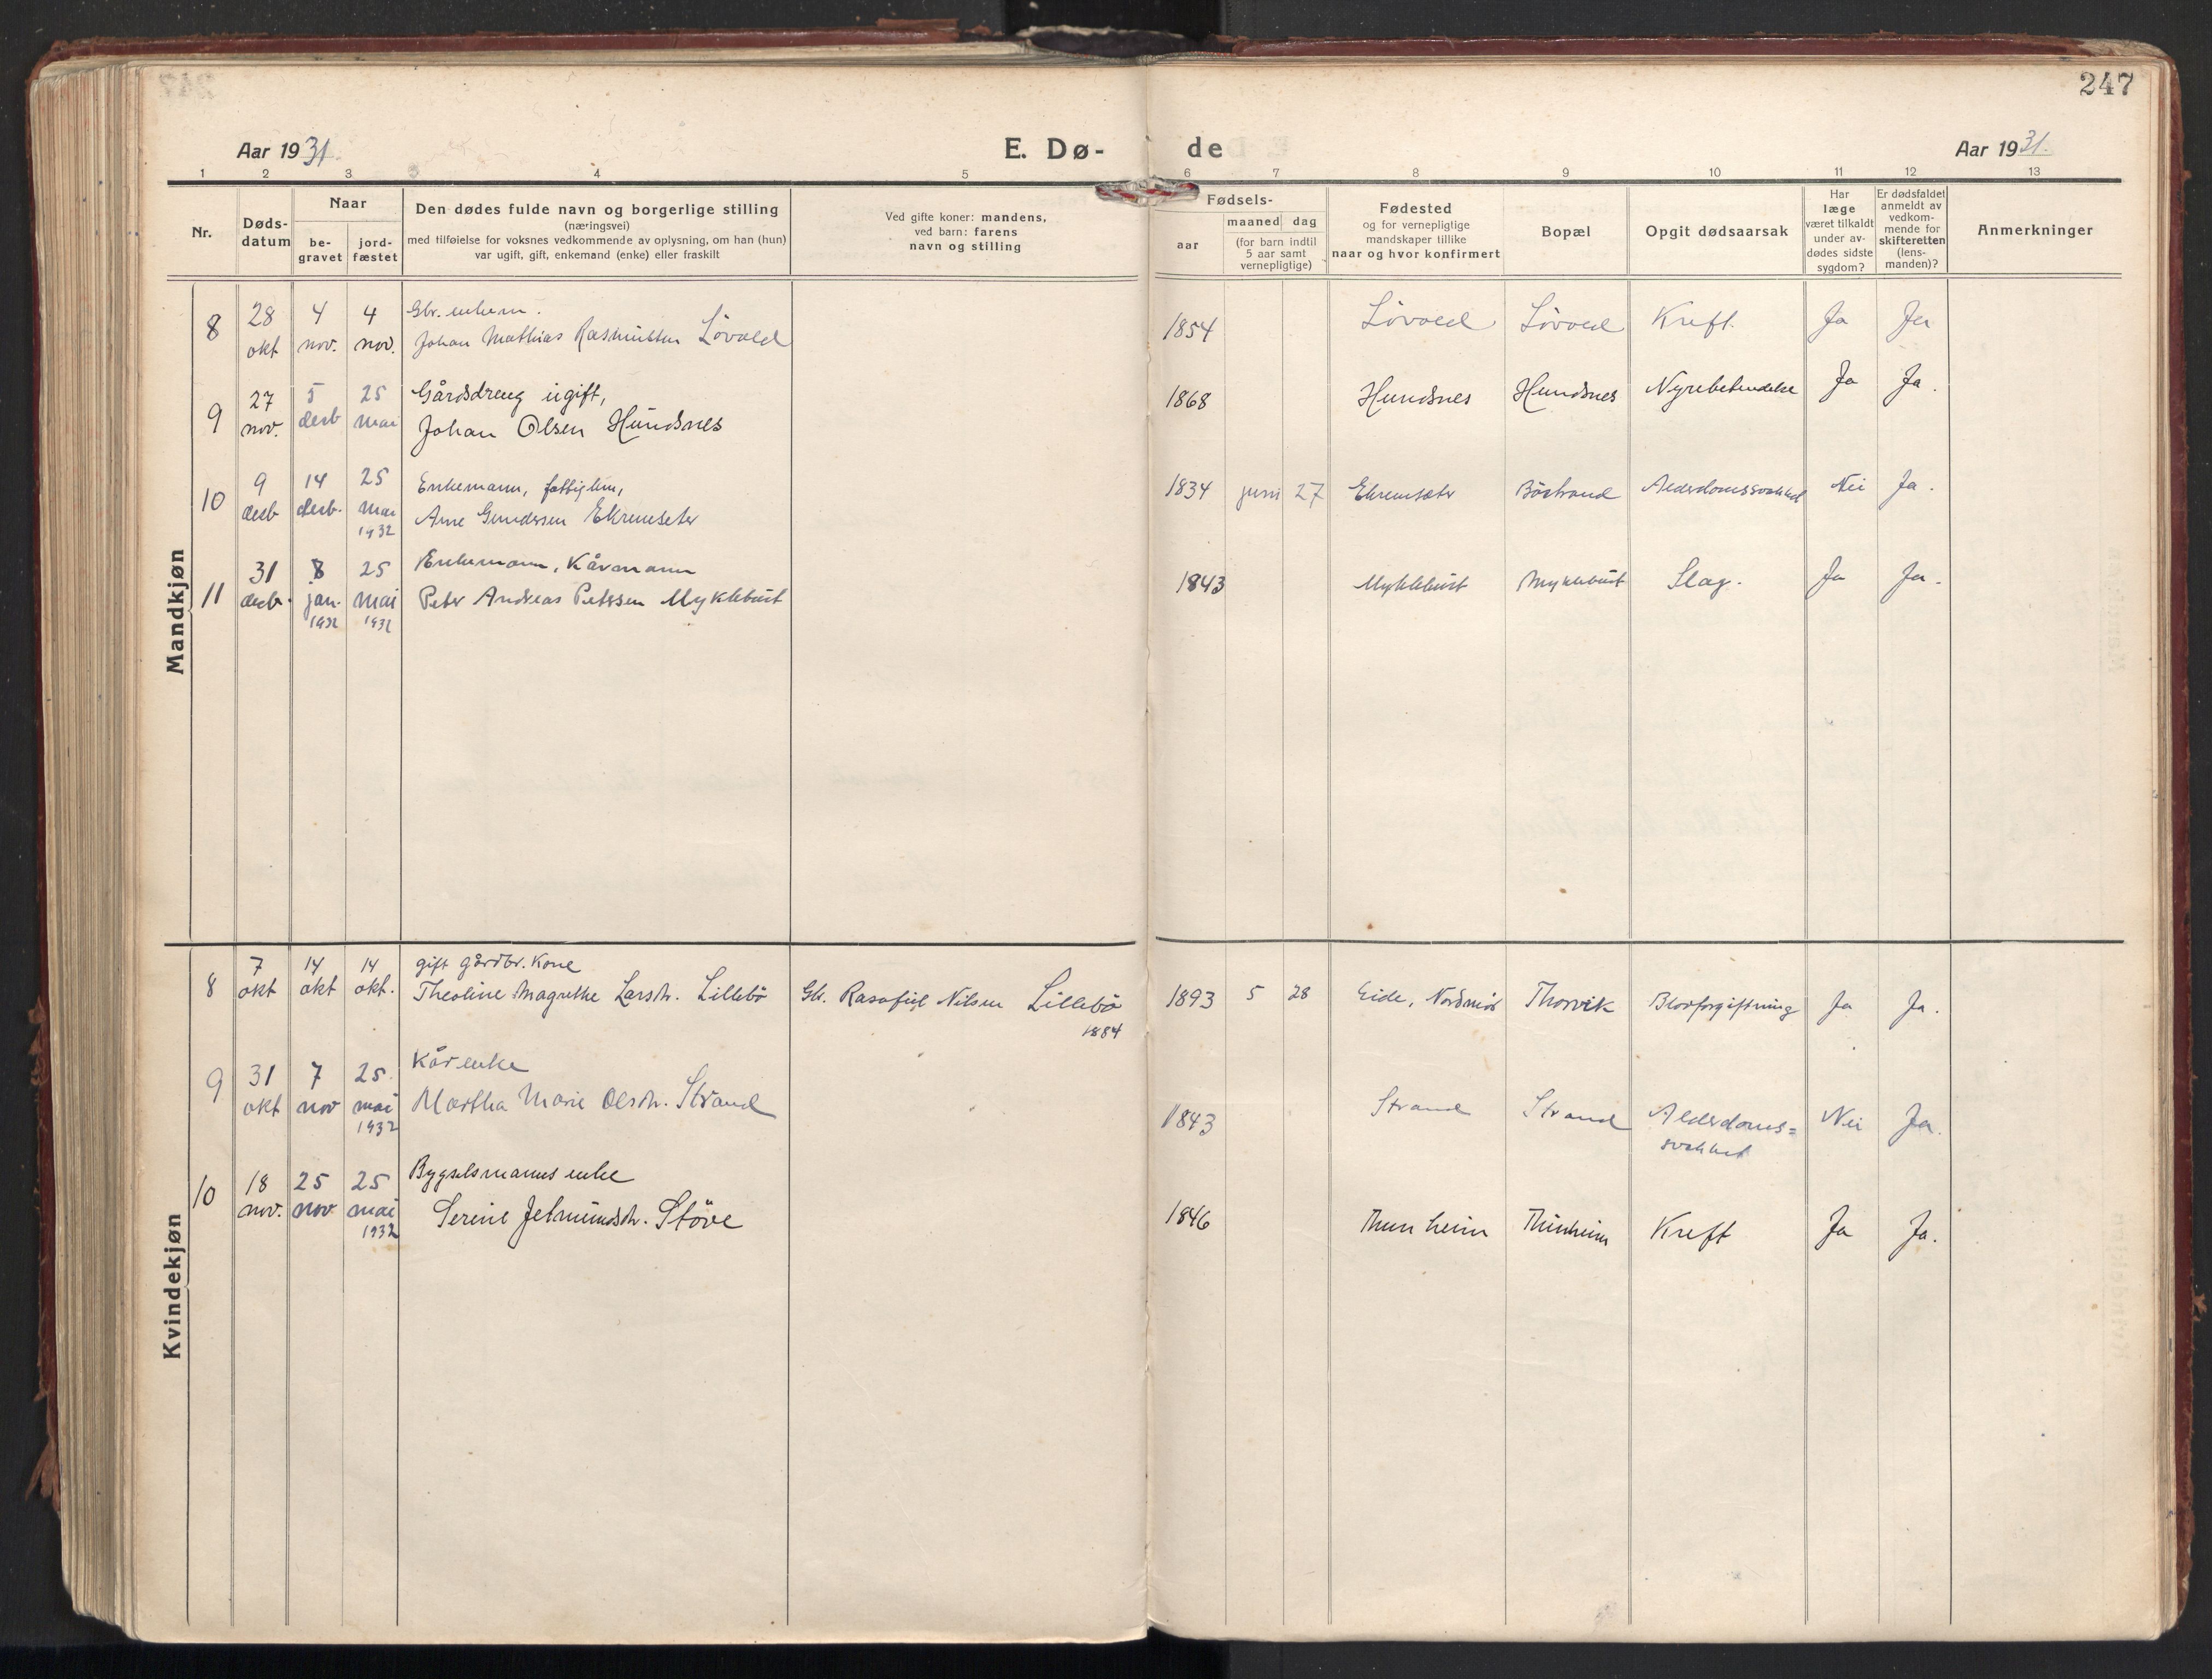 247
Aar 1931.
E. Dø-
de
Aar 1931.
1 2 3 4 5 6 7 8 9 10 11 12 13
Nr.
Døds-
datum
Naar
be-
gravet
jord-
fæstet
Den dødes fulde navn og borgerlige stilling
(næringsvei)
med tilføielse for voksnes vedkommende av oplysning, om han (hun)
var ugift, gift, enkemand (enke) eller fraskilt
Ved gifte koner: mandens,
ved barn: farens
navn og stilling
Fødsels-
aar
maaned dag
(for barn indtil
5 aar samt
vernepligtige)
Fødested
og for vernepligtige
mandskaper tillike
naar og hvor konfirmert
Bopæl
Opgit dødsaarsak
Har
læge
været tilkaldt
under av-
dødes sidste
sygdom?
Er dødsfaldet
anmeldt av
vedkom-
mende for
skifteretten
(lens-
manden)?
Anmerkninger
Mandkjøn
8 28 okt 4 nov. 4 nov.
Gbr. enkem.
Johan Mathias Rasmussen Lövold
1854 Lövold Lövold Kreft. Ja Ja
9 27 nov. 5 desb 25 mai
Gårdsdreng ugift,
Johan Olsen Hundsnes
1868 Hundsnes Hundsnes Nyrebetendelse Ja Ja.
10 9 desb 14 desb. 25 mai 1932
Enkemann, fattiglem,
Arne Gundersen Ekremseter
1834 juni 27 Ekremsæter Böstrand Alderdomssvakhet Nei Ja.
11 31 desb. 8 jan. 1932 25 mai 1932
Enkemann, Kårmann
Peter Andreas Petersen Myklebust
1843 Myklebust Myklebust Slag. Ja Ja.
Kvindekjøn
8 7 okt 14 okt 14 okt.
gift gårdbr. Kone
Theoline Magrethe Larsdtr. Lillebö
Gbr. Nilsen Lillebö
1884
1893 5 28 Eide, Nordmör Thorvik Blodforgiftning Ja Ja.
9 31 okt 7 nov 25. mai 1932
Kårenke
Martha Marie Olsdtr. Strand
1843 Strand Strand Alderdoms=
svakhet Nei Ja.
10 18 nov. 25 nov 25 mai 1932
Bygselsmanns enke
Serine Jetmundsdtr. Störe
1846 Thunheim Thunheim Kreft Ja Ja.